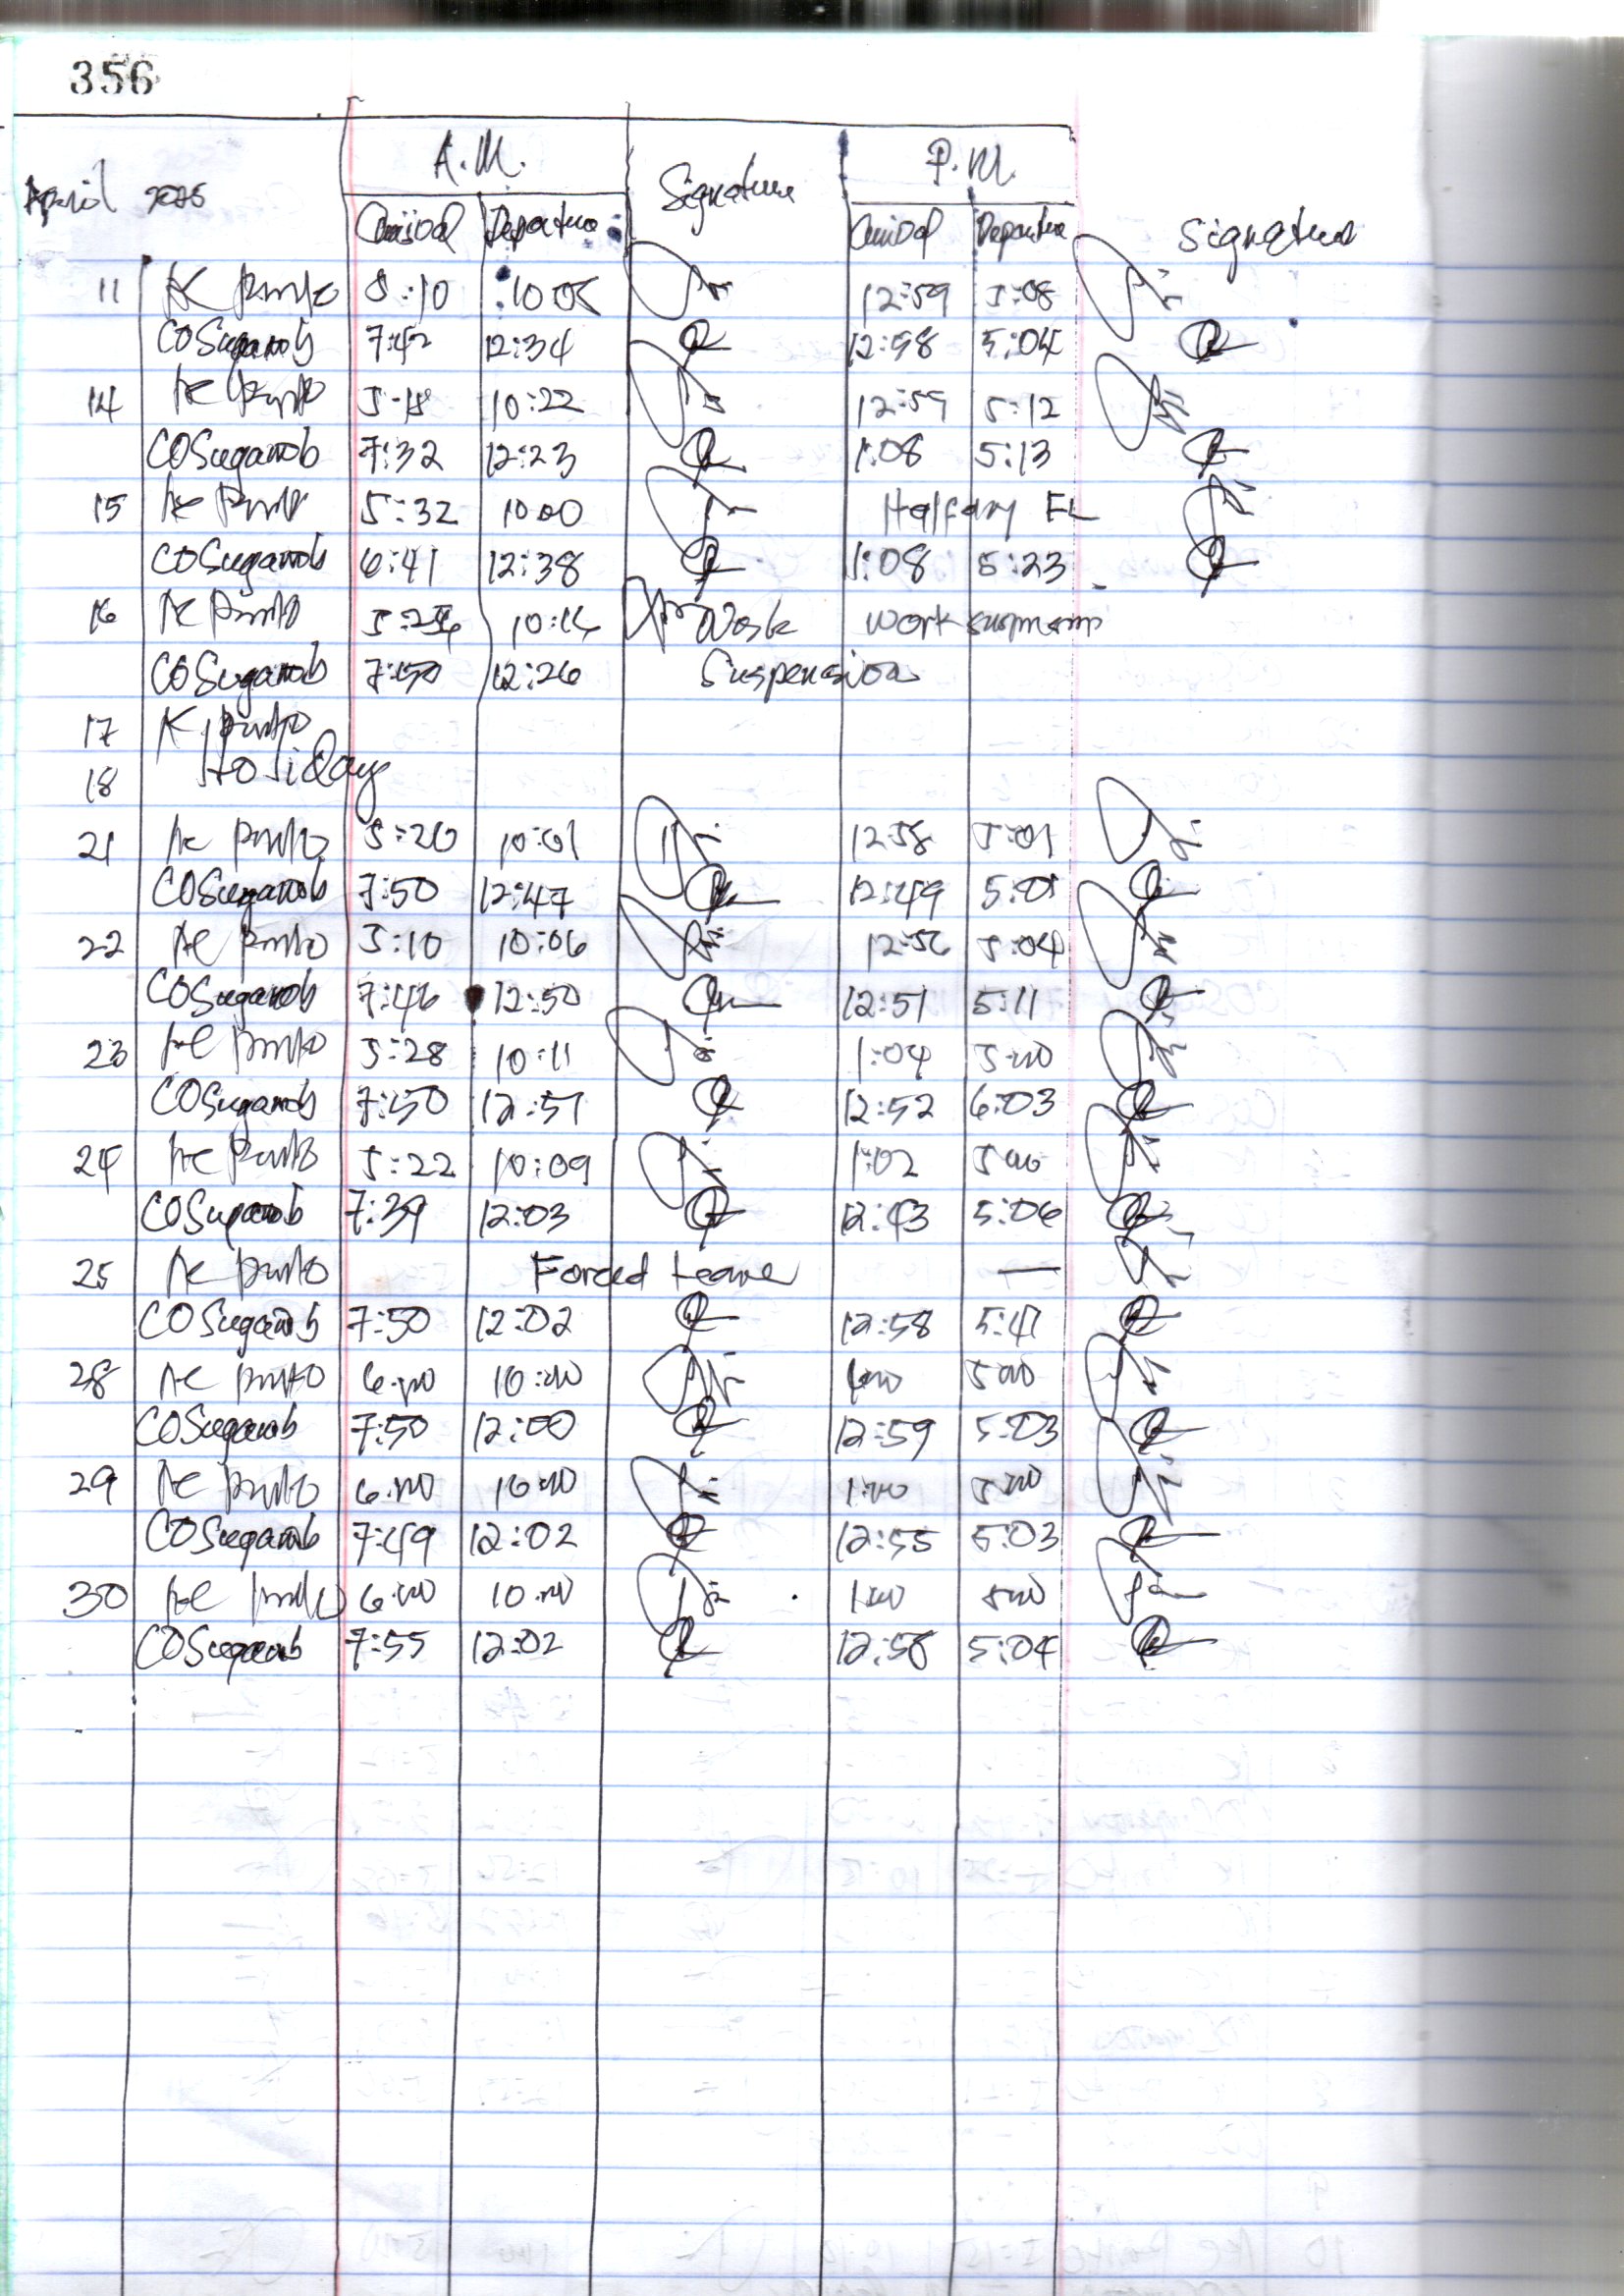 356
April 2025 A.M. Signature P.M. Signature
Arrival Departure Arrival Departure
11 AC Pinto 5:10 10:05 12:59 5:08
COSuganob 7:42 12:34 12:58 5:04
14 AC Pinto 5:18 10:22 12:59 5:12
COSuganob 7:32 12:23 1:08 5:13
15 AC Pinto 5:32 10:00 Halfday FL
COSuganob 6:41 12:38 1:08 5:23
16 AC Pinto 10:15 Work Work suspension
COSuganob 7:50 12:26 Suspension
17 AC Pinto
18 Holiday
21 AC Pinto 5:20 10:01 12:58 5:01
COSuganob 7:50 12:47 12:49 5:01
22 AC Pinto 5:10 10:06 12:56 5:04
COSuganob 7:46 12:50 12:51 5:11
23 AC Pinto 5:28 10:11 1:04 5:00
COSuganob 7:50 12:51 12:52 6:03
24 AC Pinto 5:22 10:09 1:02 5:00
COSuganob 7:39 12:03 12:43 5:06
25 AC Pinto Forced Leave —
COSuganob 7:50 12:02 12:58 5:41
28 AC Pinto 6:00 10:00 1:00 5:00
COSuganob 7:50 12:00 12:59 5:03
29 AC Pinto 6:00 10:00 1:00 5:00
COSuganob 7:49 12:02 12:55 5:03
30 AC Pinto 6:00 10:00 1:00 5:00
COSuganob 7:55 12:02 12:58 5:04